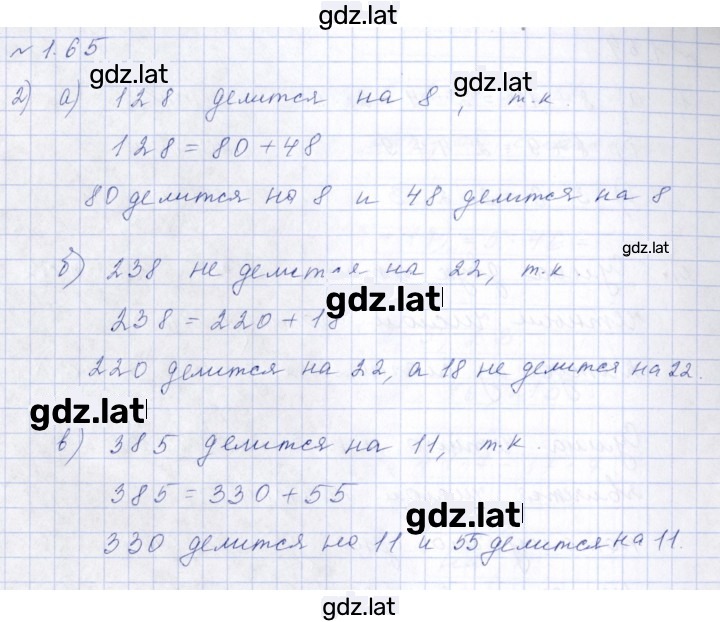 gdz.lat
№ 1.65
gdz.lat
gdz.lat
2) а) 128 делится на 8, т.к
128 = 80 + 48
80 делится на 8 и 48 делится на 8
gdz.lat
б) 238 не делится на 22, т.к
gdz.lat
238 = 220 + 18
220 делится на 22, а 18 не делится на 22.
gdz.lat
в) 385 делится на 11, т.к.
385 = 330 + 55
gdz.lat
330 делится на 11 и 55 делится на 11.
gdz.lat